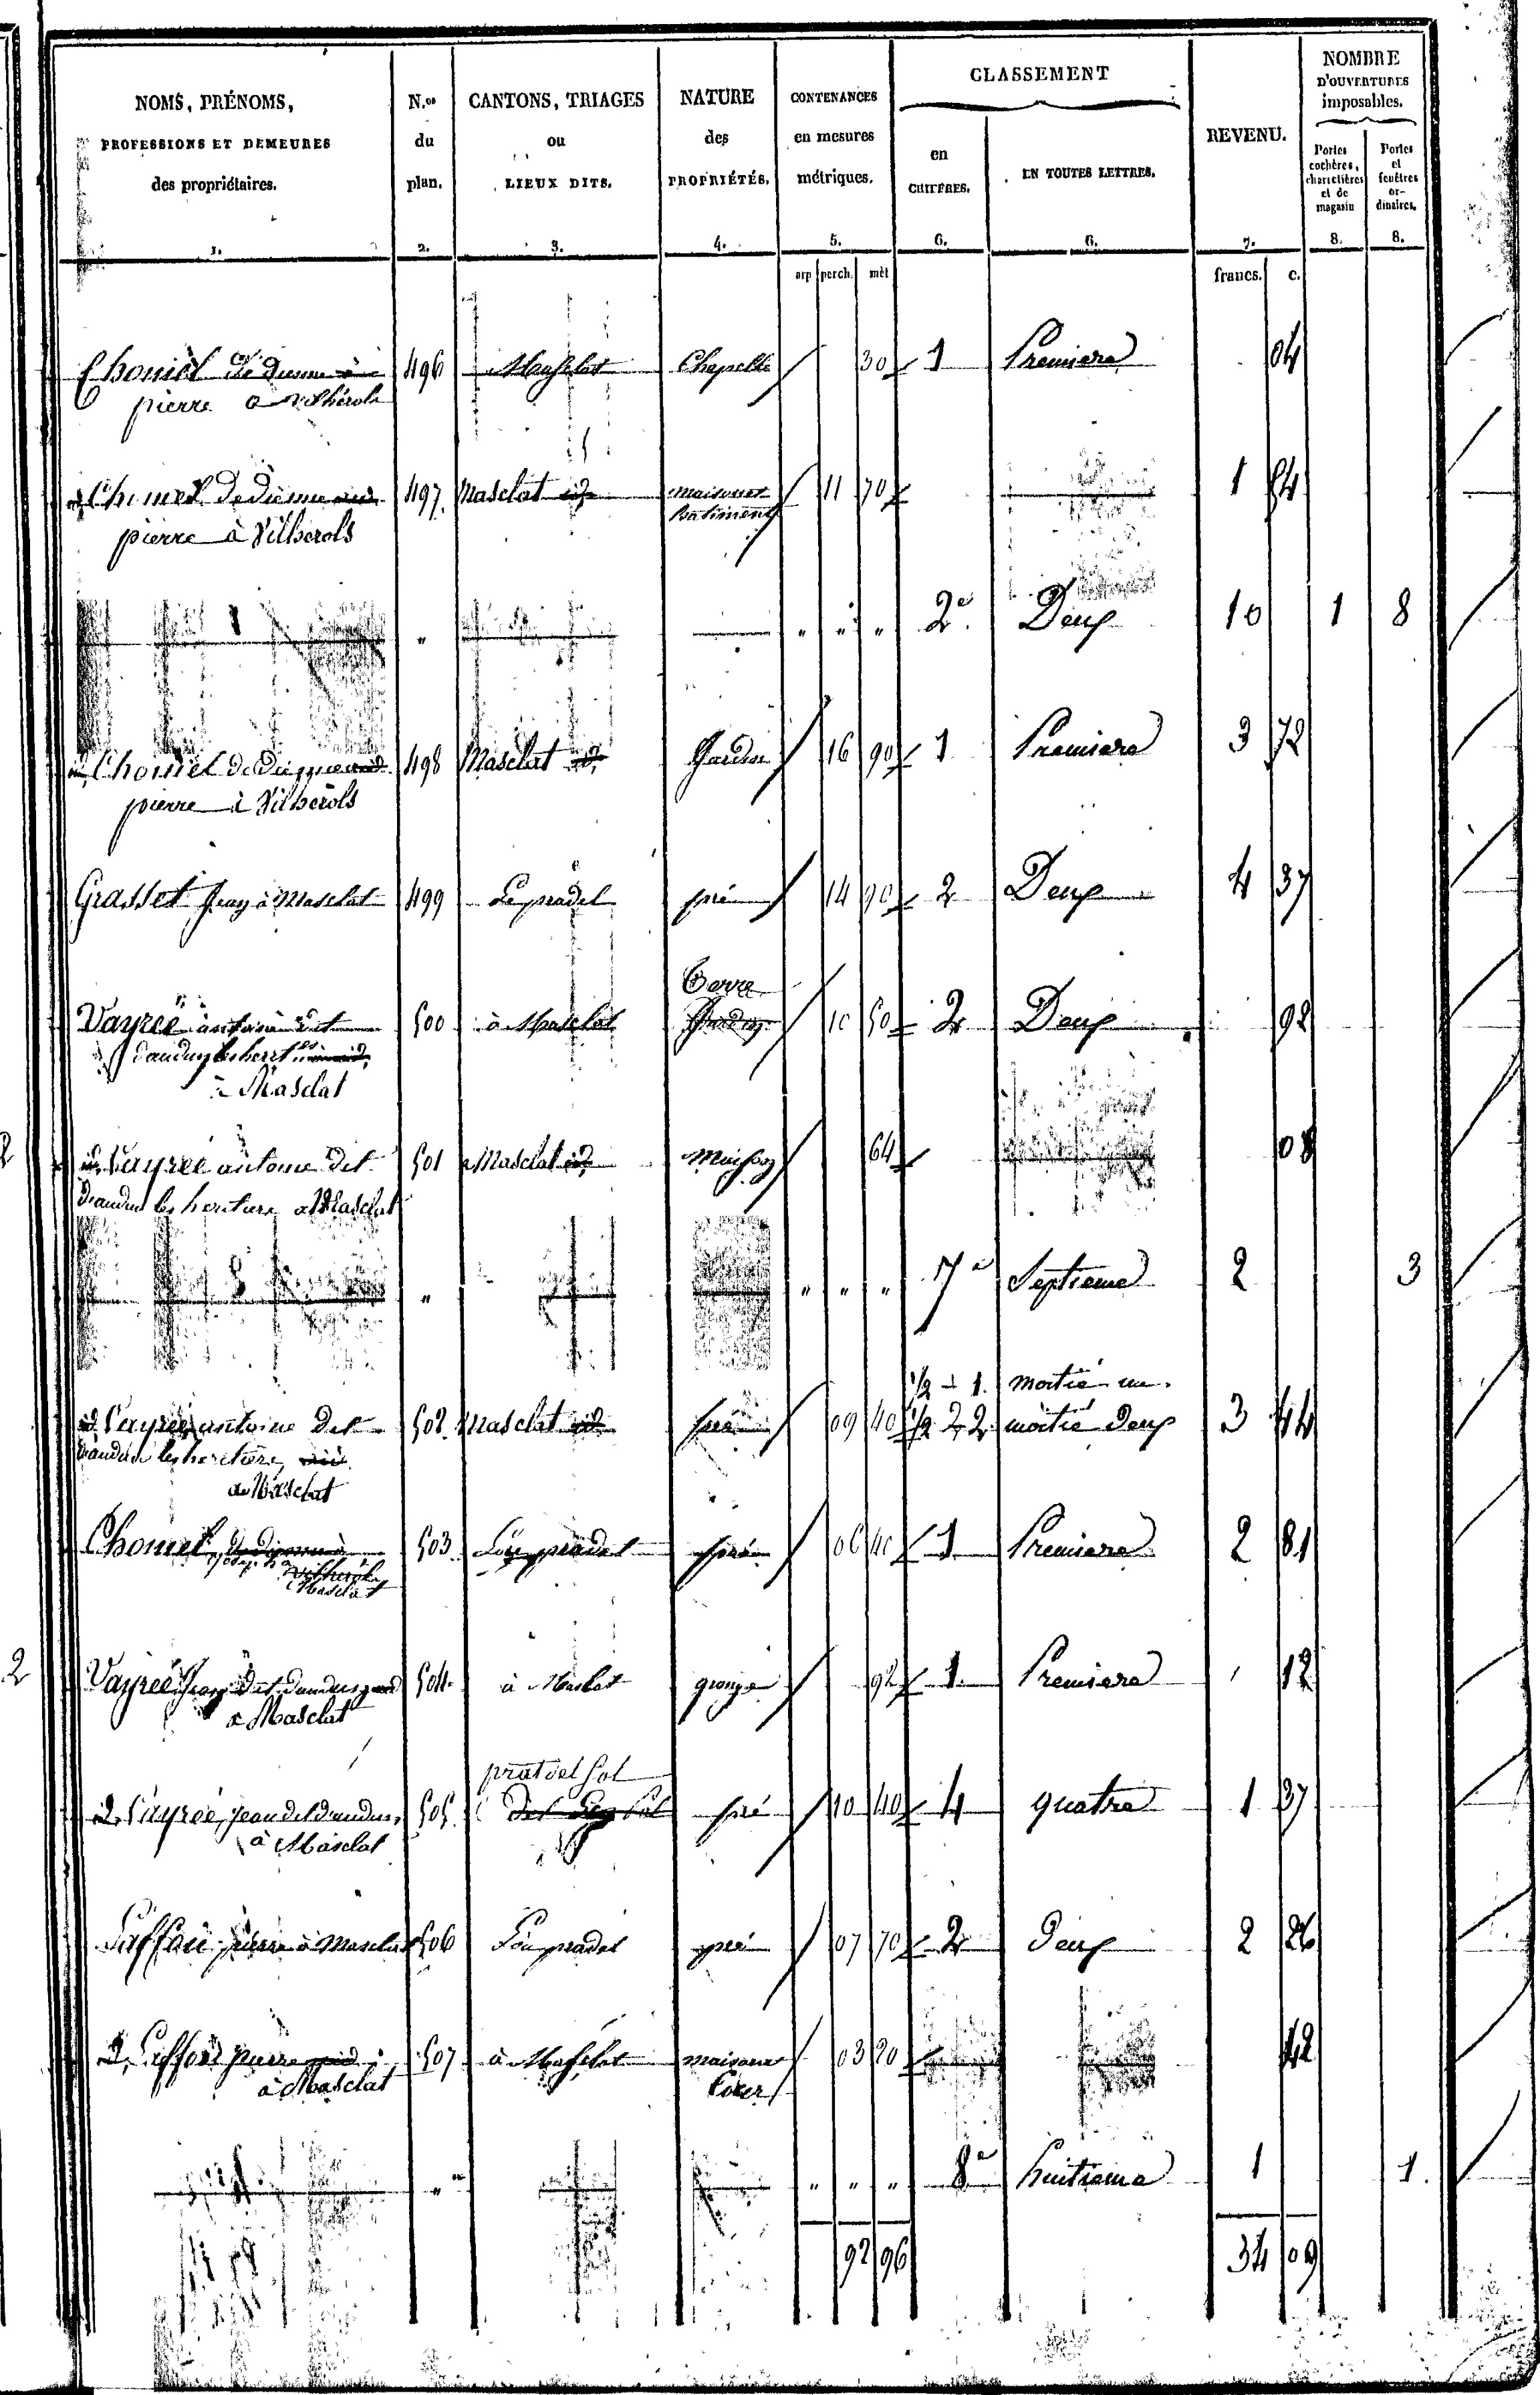 NOMS, PRÉNOMS, N.os CANTONS, TRIAGES NATURE CONTENANCES CLASSEMENT REVENU. NOMBRE
D'OUVERTURES
imposables.
PROFESSIONS ET DEMEURES du ou des en mesures
des propriétaires. plan. LIEUX DITS. PROPRIÉTÉS. métriques. en CHIFFRES. EN TOUTES LETTRES. Portes cochères, charretières et de magasin Portes et fenêtres or- dinaires.
1. 2. 3. 4. 5. 6. 6. 7. 8. 8.
arp perch. mèt francs. c.
Chomel de dienne à 496 Masclat Chapelle 30 1 Premiere 04
pierre a vilherols
id Chomel de dienne 497. Masclat id maison et 11 70 1 84
Batiment
pierre à Vilherols
" " " " 2e Deux 10 1 8
id Chomel de dienne 498 Masclat id Jardin 16 90 1 Premiere 3 72
pierre à Vilherols
Grasset Jean à Masclat 499 Le pradel pré 14 90 2 Deux 4 37
Terre
Vayreé antoine dit 500 à Masclat Jardin 10 50 2 Deux 92
à Masclat
id Vayreé antoine dit 501 Masclat id Maison 64 08
daudun les heritiers a Masclat
" " " " 7e Septieme 2 3
1/2 1. moitié un.
id Vayreé antoine dit 502. Masclat id pré 09 40 1/2 2 moitié deux 3 44
les heritiers
a Masclat
Chomel 503. Lou pradel pré 06 40 1 Premiere 2 81
vilherols
Masclat
Vayreé Jean dit daudun 504. à Masclat grange 92 1. Premiere 12
a Masclat
prat del sol
id Vayreé, Jean dit daudun, 505. pré 10 40 4 quatre 1 37
à Masclat
pierre à Masclat 506 Lou pradel pré 07 70 2 Deux 2 26
id pierre 507 à Masclat maison et 03 20 42
à Masclat
" " " " 8e huitieme 1 1.
92 96 34 09
2
2